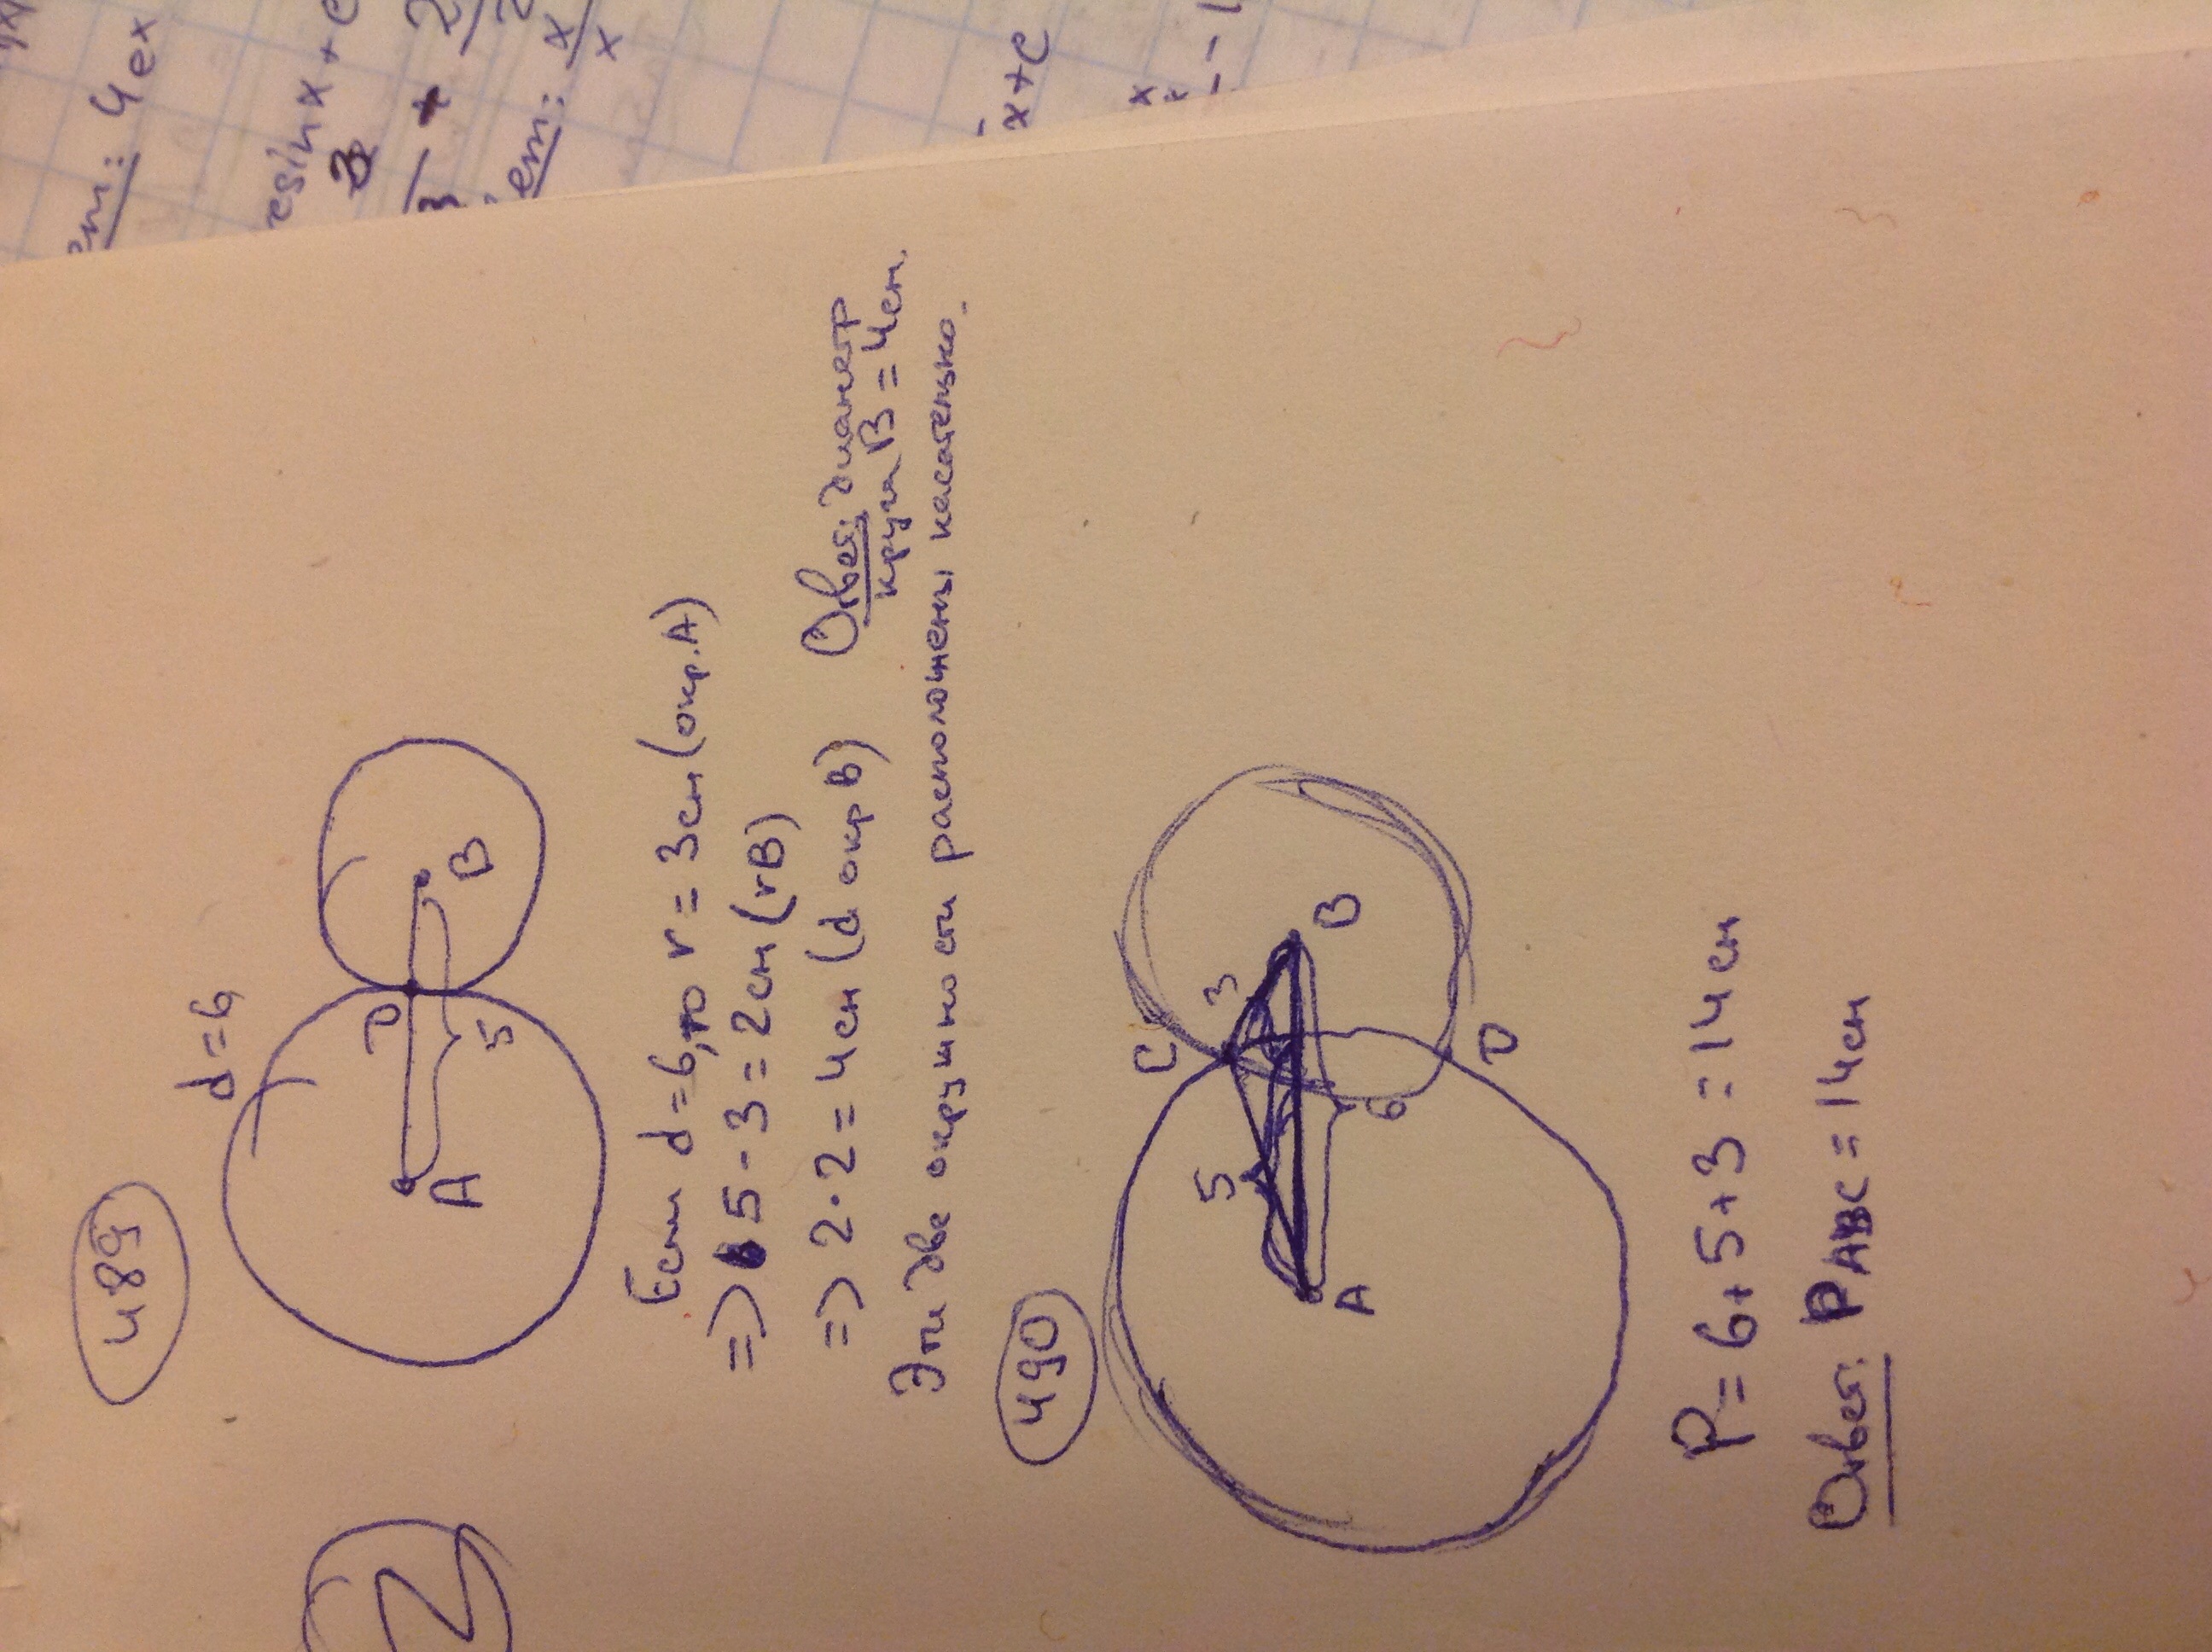 ет: 4ex
resinx + c
3
+ 2
ет: x
x
x+c
489
d=6
D
A
B
5
Если d=6, то r=3см (окр.A)
=> 5-3=2см (rB)
=> 2·2=4см (d окр B)
Ответ: диаметр
круга B = 4см.
Эти две окружности расположены касательно.
490
C
3
5
A
B
6
D
P=6+5+3=14см
Ответ: PABC=14см